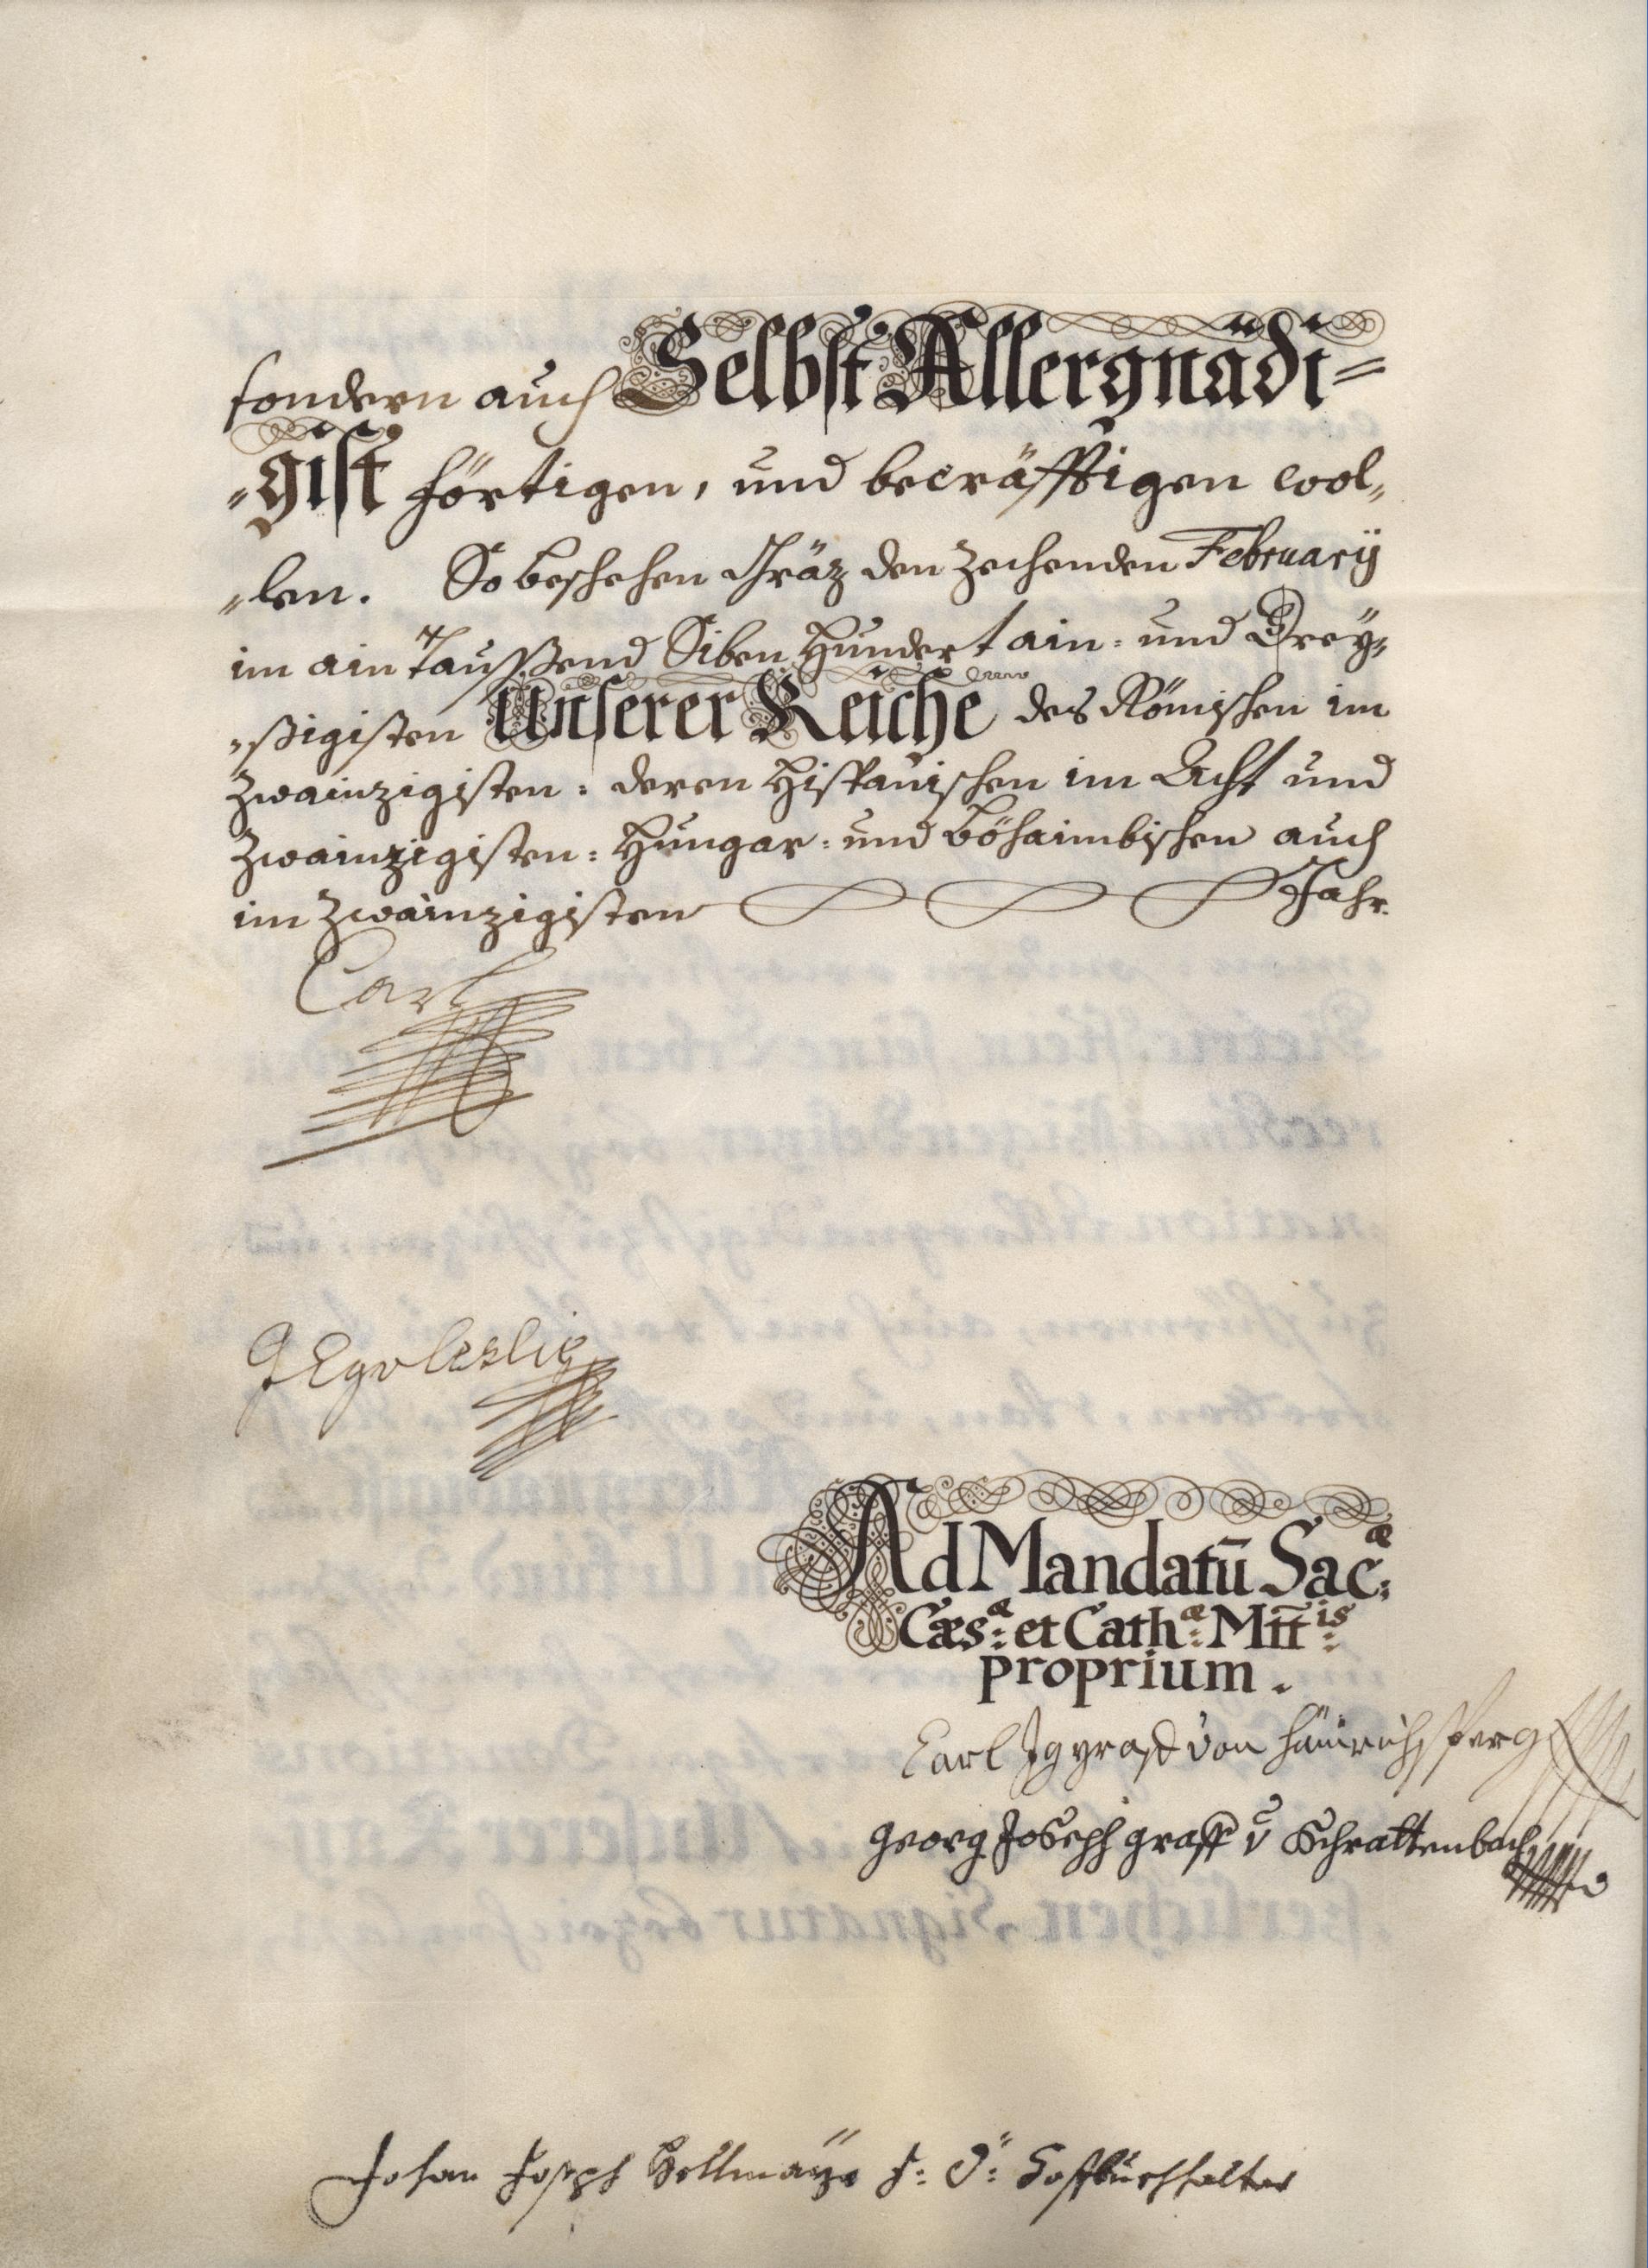 sondern auch Selbst Allergnädi=
"gist förtigen, und becräfftigen wol„
"len. So beschehen Gräz den Zechenden February
im ain Taußend Siben Hundert ain= und Drey„
"ßigisten Unserer Reiche des Römischen im
Zwainzigisten: deren Hispanischen im Acht und
Zwainzigisten: Hungar= und Böhaimbischen auch
im Zwainzigisten Jahr.
Carl
Leslie
Ad Mandatū Sac:æ
Cæs:æ et Cath:æ Mtt:is
proprium.
Carl von Hainrichsperg
Georg Joseph graff v Schrattenbach
Johan Joseph Hellmayr I: Ö: Hoffbuchhalter